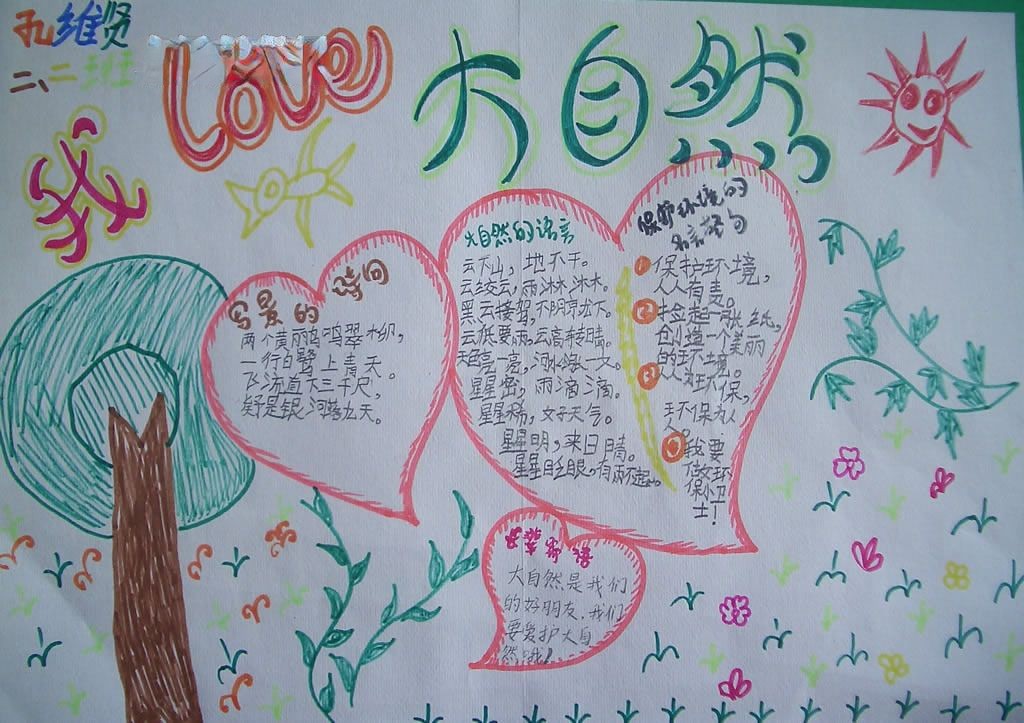 孔维贤
二、二班
我
Love
大自然
写景的诗句
两个黄丽鸣翠柳，
一行白鹭上青天。
飞流直下三千尺，
疑是银河落九天。
大自然的语言
云下山，地不干。
云绞云，雨淋淋。
黑云接驾，不阴就下。
云低要雨，云高转晴。
星星密，雨滴滴。
星星稀，好天气。
星星明，来日晴。
星星眨眼，有雨不远。
保护环境的
名言警句
1 保护环境，
人人有责。
2 捡起一张纸，
创造一个美丽
的环境。
3 人人为环保，
环保为人
人。
4 我要
做环
保小卫
士！
大自然是我们
的好朋友，我们
要爱护大自
然哦！